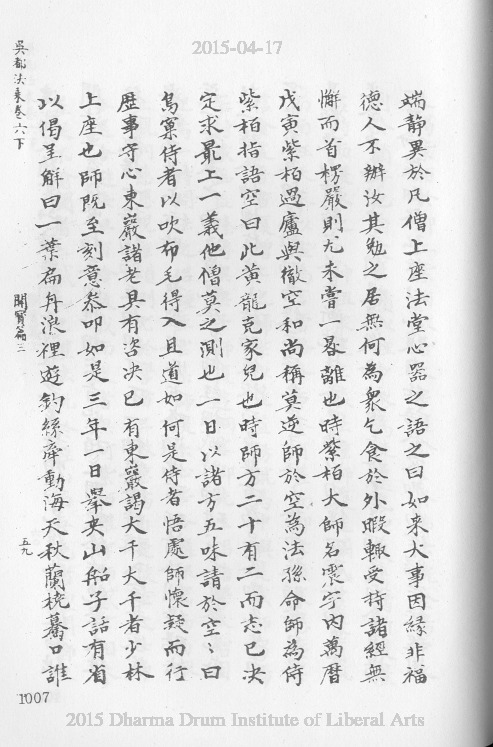 2015-04-17
吳都法乘卷六下
開賢篇三
五九
端靜異於凡僧上座法堂心器之語之曰如来大事因緣非福
德人不辦汝其勉之居無何為衆乞食於外暇輒受持諸經無
懈而首楞嚴則尤未嘗一晷離也時紫栢大師名震宇內萬曆
戊寅紫栢過廬與徹空和尚稱莫逆師於空為法孫命師為侍
紫栢指語空曰此黃龍克家兒也時師方二十有二而志已決
定求最上一義他僧莫之測也一日以諸方五味請於空〻曰
鳥窠侍者以吹布毛得入且道如何是侍者悟處師懷疑而行
歷事守心東巖諸老具有咨决已有東巖謁大千大千者少林
上座也師既至刻意叅叩如是三年一日舉夹山船子話有省
以偈呈觧曰一葉扁舟浪裡遊釣絲牽動海天秋蘭橈驀口誰
1007
2015 Dharma Drum Institute of Liberal Arts